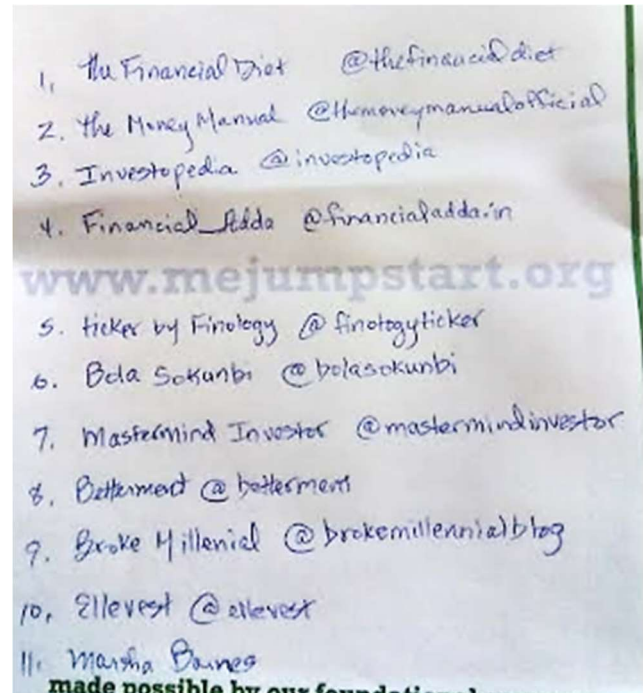 1, The Financial Diet @thefinancialdiet
2. The Money Manual @themoneymanualofficial
3. Investopedia @investopedia
4. Financial_Adda @financialadda.in
www.mejumpstart.org
5. ticker by Finology @finologyticker
6. Bola Sokunbi @bolasokunbi
7. Mastermind Investor @mastermindinvestor
8. Betterment @betterment
9. Broke Millenial @brokemillennialblog
10, Ellevest @ellevest
11. Marsha Barnes
made possible by our foundational